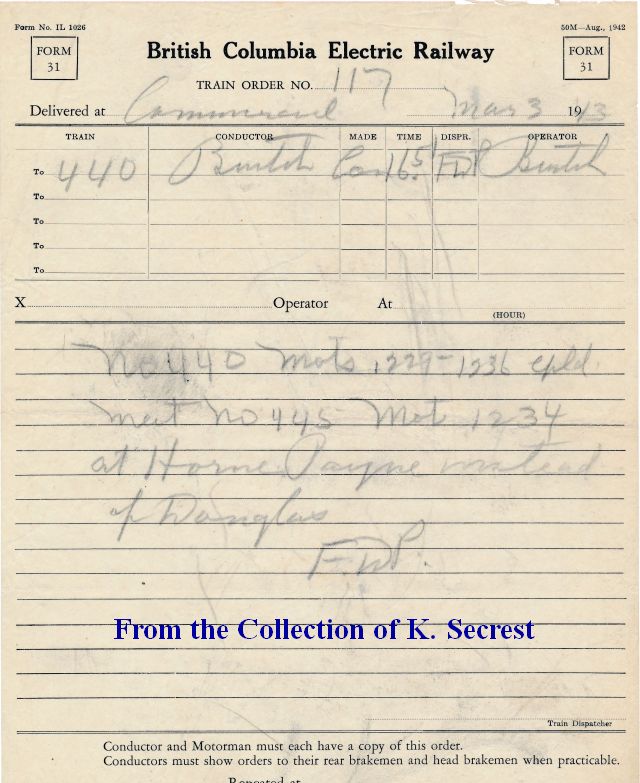 Form No. IL 1026
50M—Aug., 1942
FORM 31
British Columbia Electric Railway
FORM 31
TRAIN ORDER NO. 117
Delivered at Commercial Mar 3 1943
TRAIN CONDUCTOR MADE TIME DISPR. OPERATOR
To 440 Com 16.5 FDP
To
To
To
To
X Operator At
(HOUR)
No 440 Mots 1229-1236 cpld.
meet No 445 Mot 1234
at Horne Payne instead
of Douglas
F.D.P.
From the Collection of K. Secrest
Train Dispatcher
Conductor and Motorman must each have a copy of this order.
Conductors must show orders to their rear brakemen and head brakemen when practicable.
Repeated at